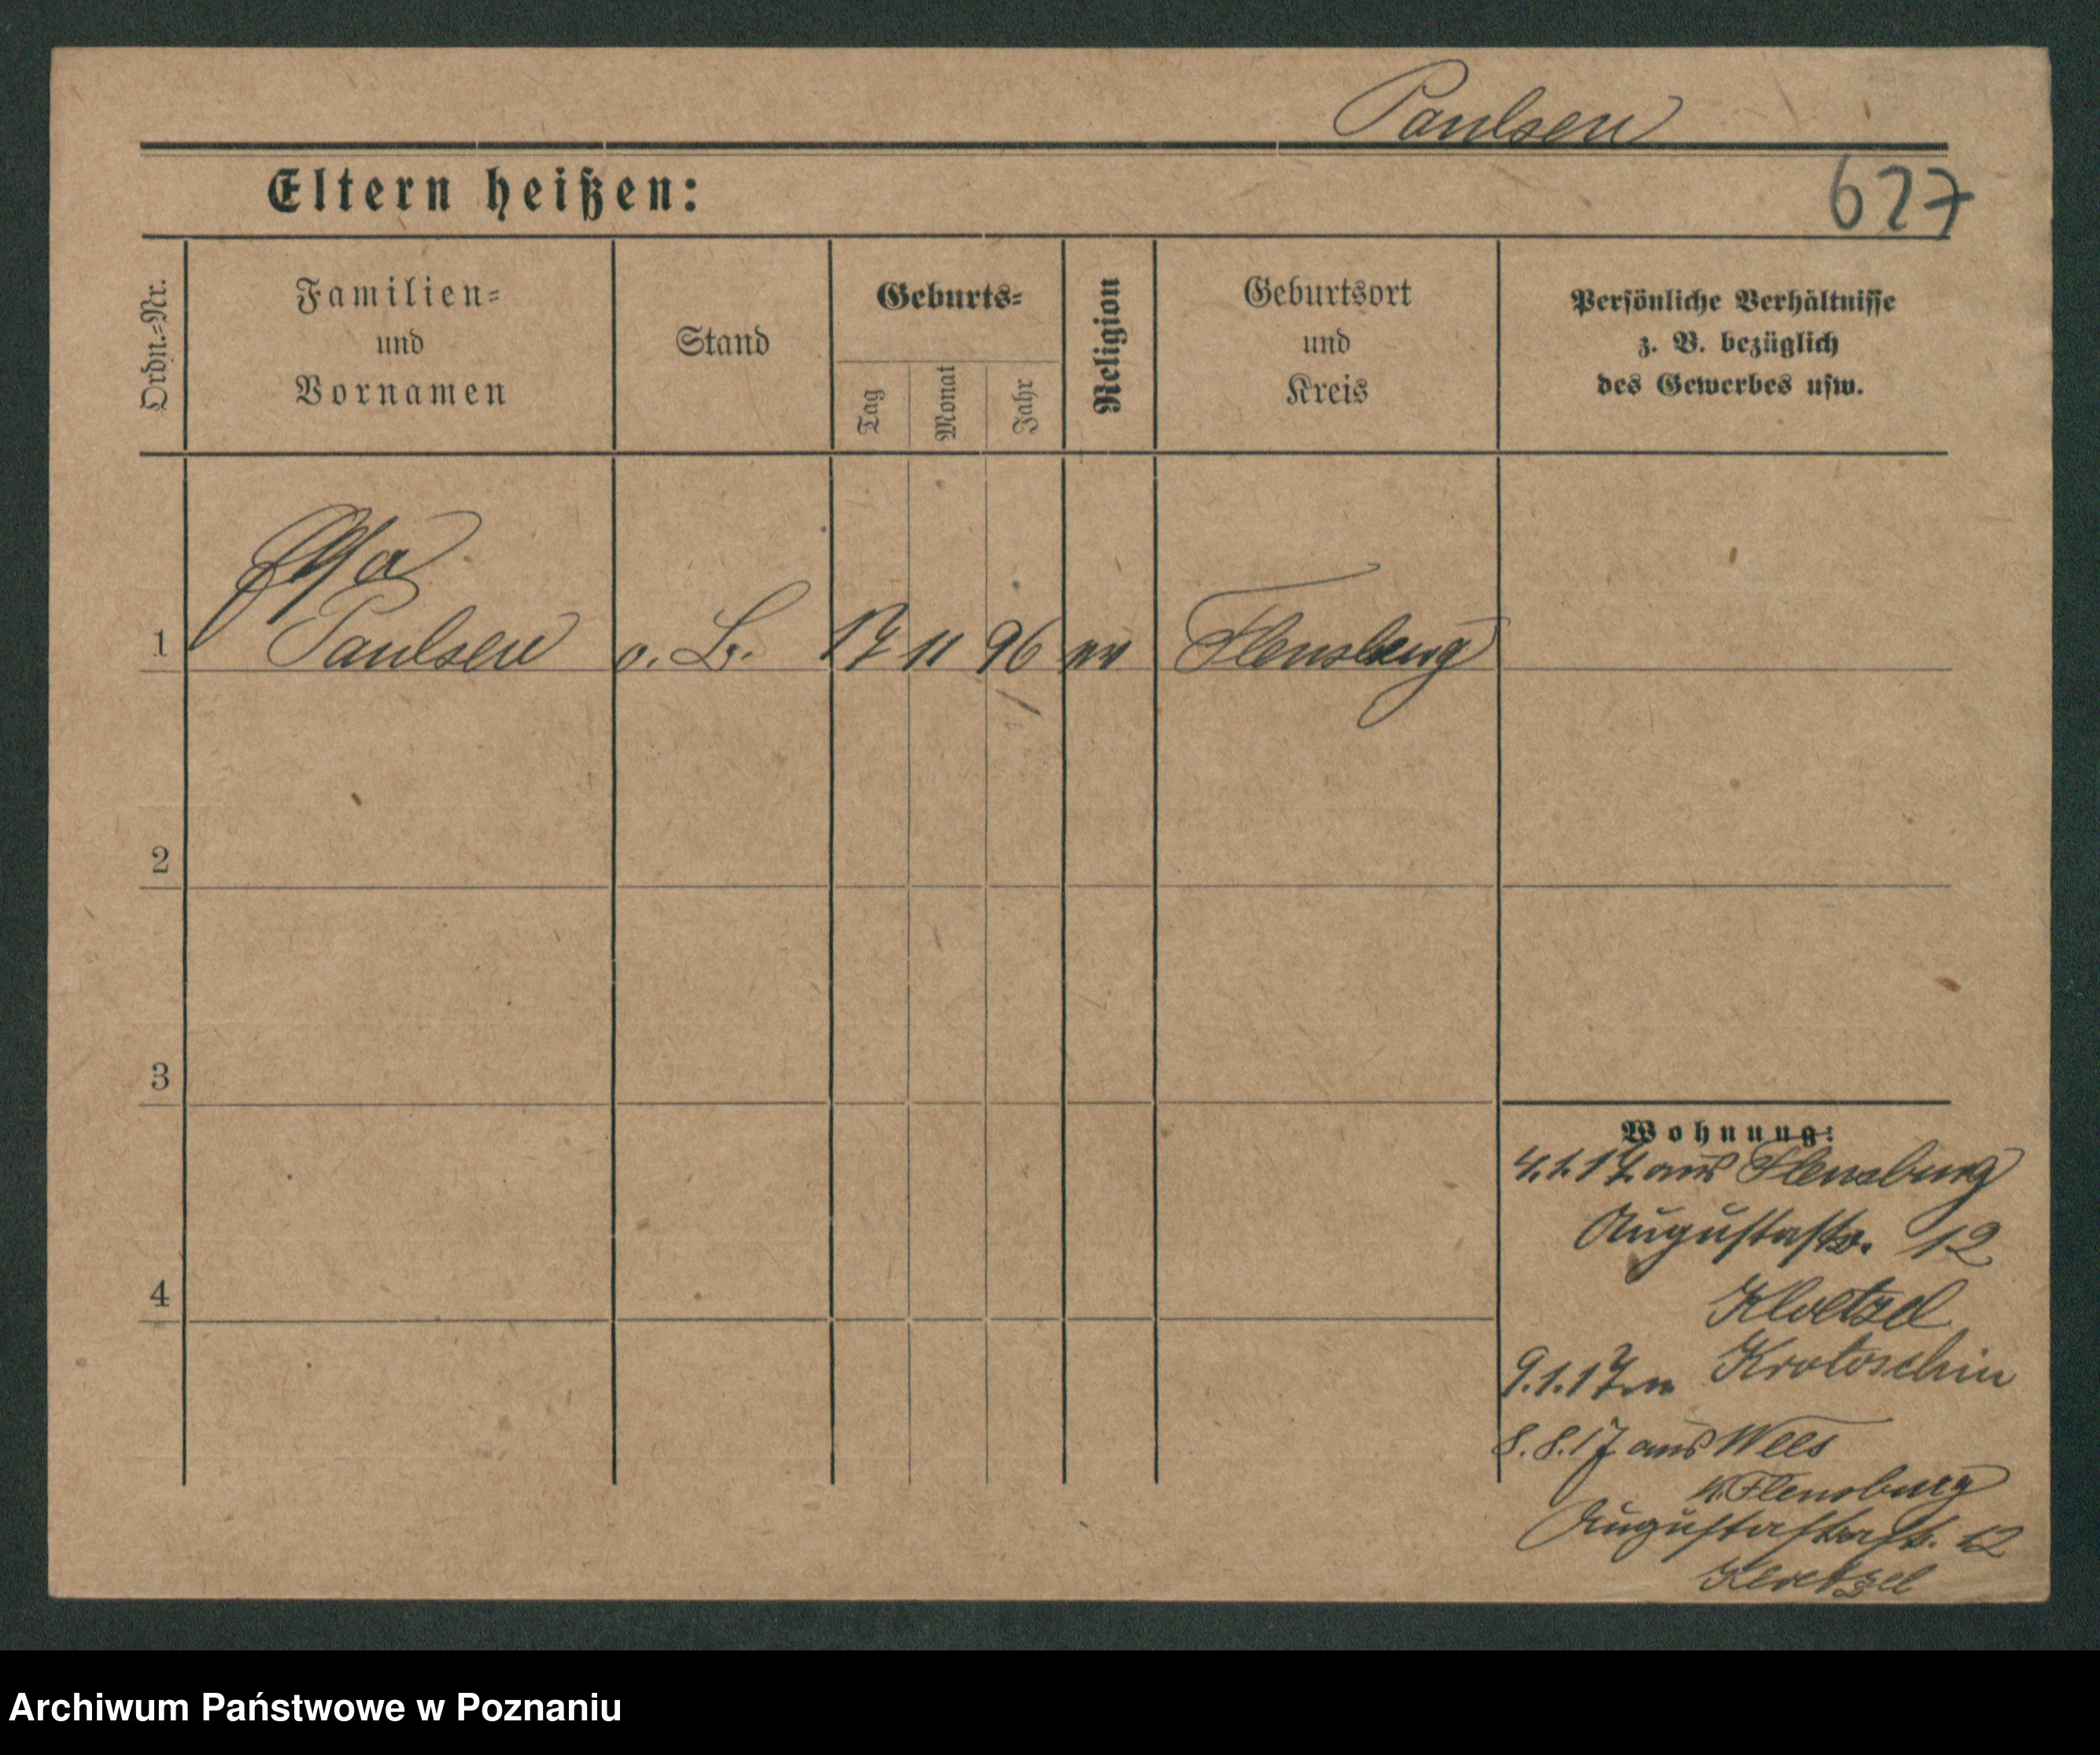 Paulsen
Eltern heißen:
627
Ordn.=Nr.
Familien=
und
Vornamen
Stand
Geburts=
Tag
Monat
Jahr
Religion
Geburtsort
und
Kreis
Persönliche Verhältnisse
z. B. bezüglich
des Gewerbes usw.
1 Paulsen o. B. 17 11 96 ev Flensburg
2
3
4
Wohnung:
4.1.17 aus Flensburg
Augustastr. 12
Kloetzel
9.1.17 n Krotoschin
8.8.17 aus Wees
k. Flensburg
12
Kloetzel
Archiwum Państwowe w Poznaniu